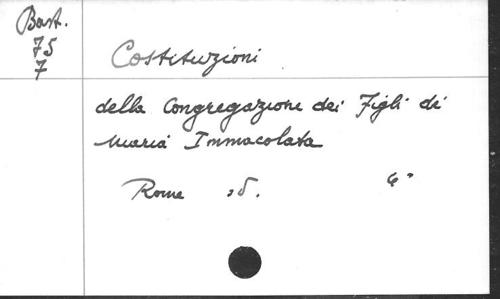 Bast.
75
7
Costituzioni
della Congregazione dei Figli di
Maria Immacolata
Roma s.d. 6°